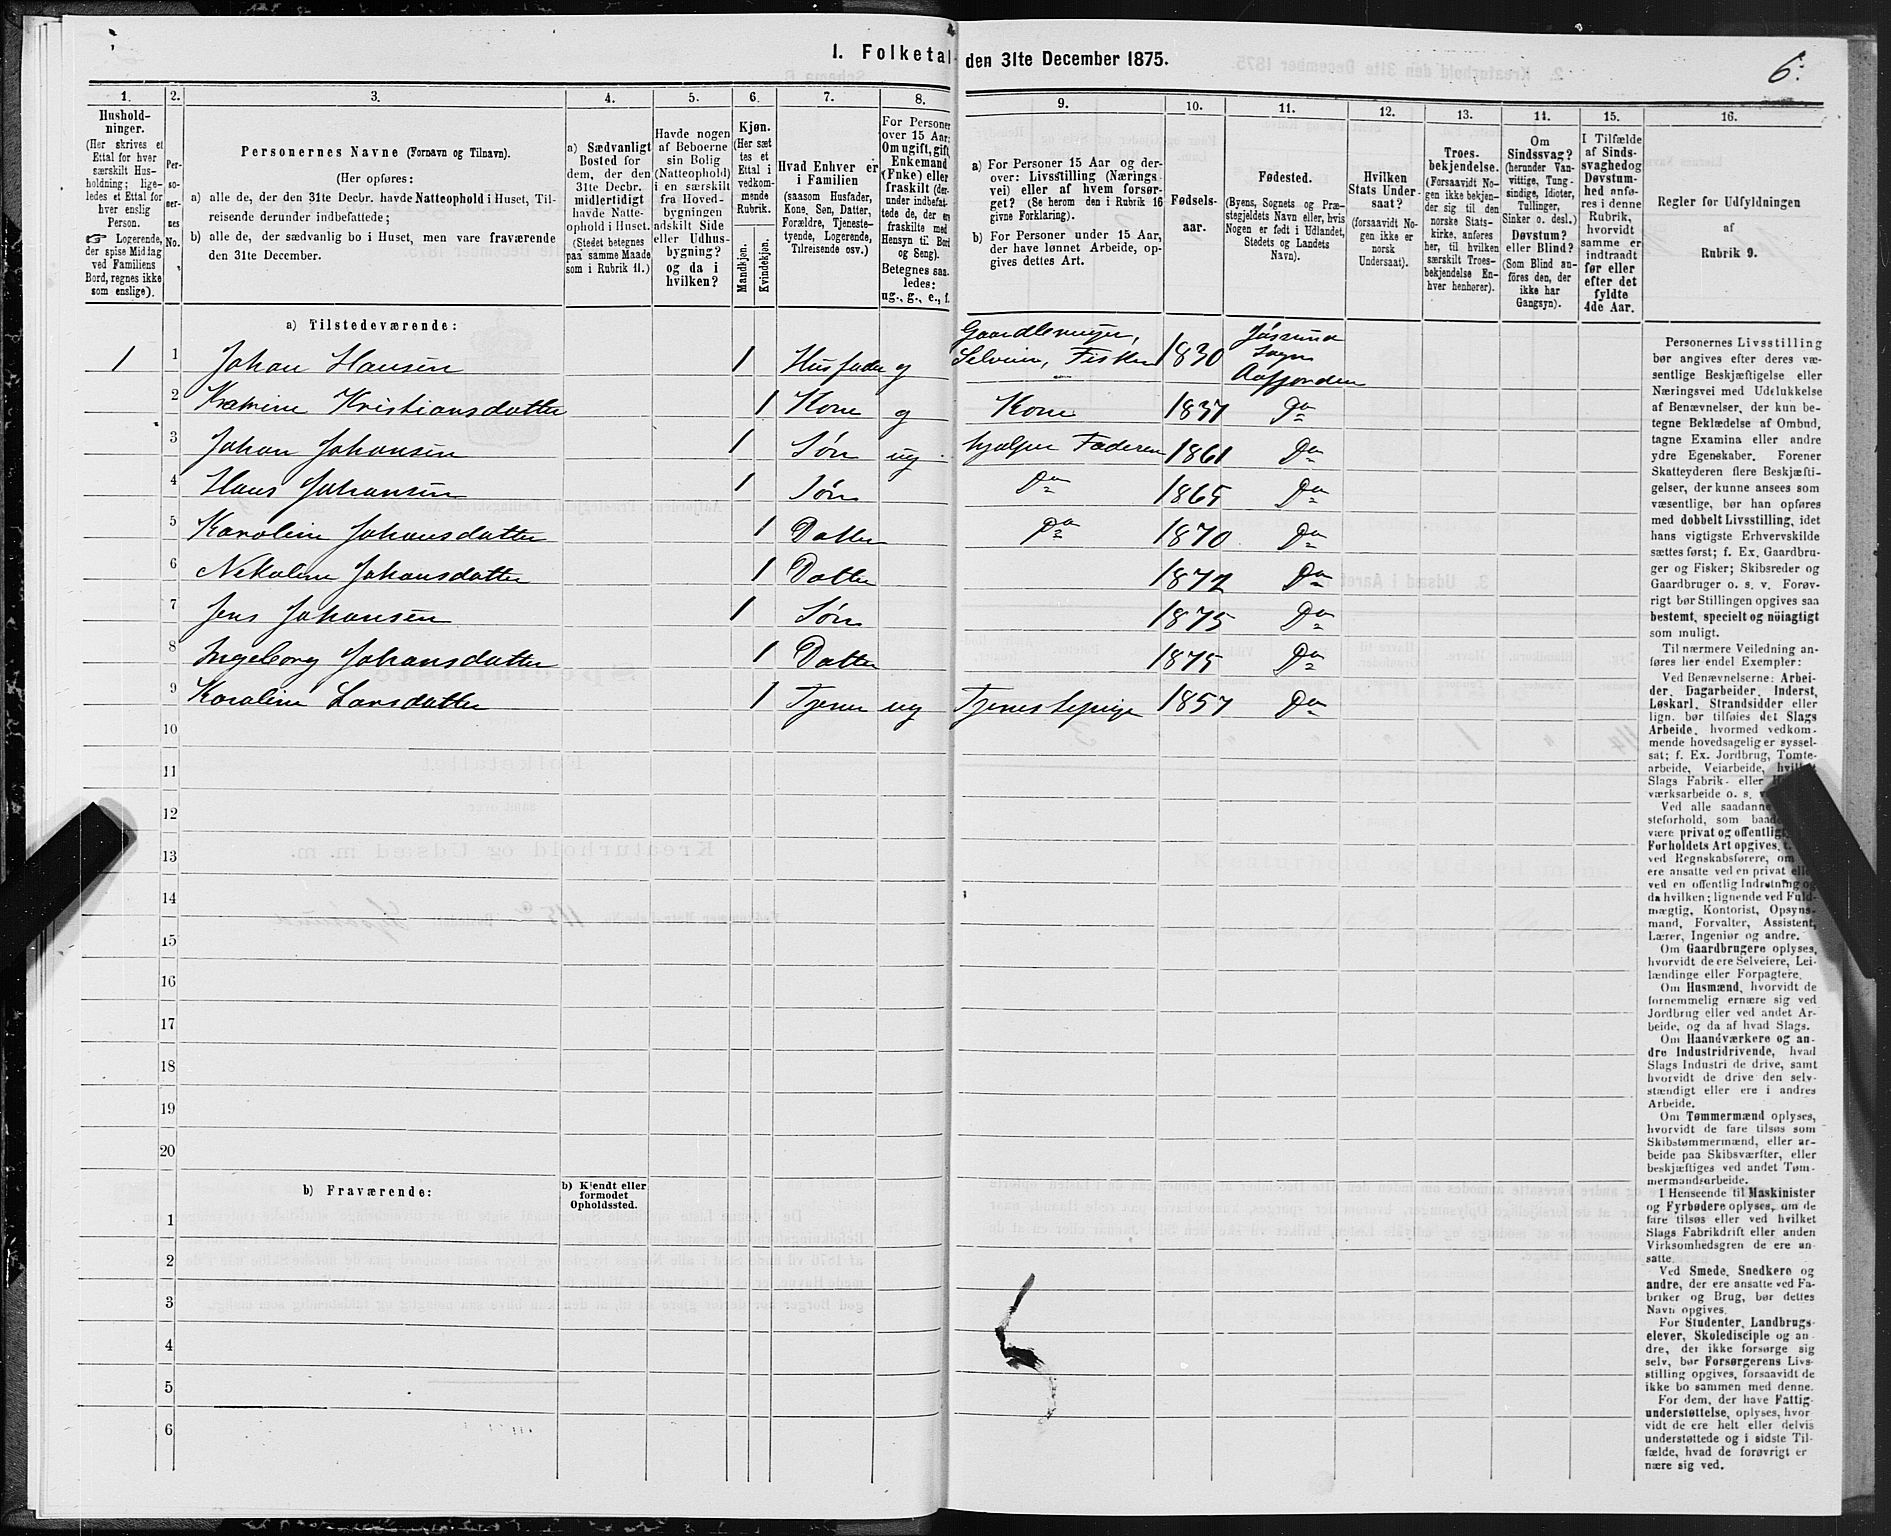 1. Folketal den 31te December 1875.
6.
1.
Hushold-
ninger.
(Her skrives et
Ettal for hver
særskilt Hus-
holdning; lige-
ledes et Ettal for
hver enslig
Person.
☞ Logerende,
der spise Middag
ved Familiens
Bord, regnes ikke
som enslige).
2.
Per-
so-
ner-
nes
No.
3.
Personernes Navne (Fornavn og Tilnavn).
(Her opføres:
a) alle de, der den 31te Decbr. havde Natteophold i Huset, Til-
reisende derunder indbefattede;
b) alle de, der sædvanlig bo i Huset, men vare fraværende
den 31te December.
4.
a) Sædvanligt
Bosted for
dem, der den
31te Decbr.
midlertidigt
havde Natte-
ophold i Huset.
(Stedet betegnes
paa samme Maade
som i Rubrik 11.)
5.
Havde nogen
af Beboerne
sin Bolig
(Natteophold)
i en særskilt
fra Hoved-
bygningen
adskilt Side
eller Udhus-
bygning?
og da i
hvilken?
6.
Kjøn.
(Her sæt
tes et
Ettal i
vedkom-
mende
Rubrik.
Mandkjøn.
Kvindekjøn.
7.
Hvad Enhver er
i Familien
(saasom Husfader,
Kone, Søn, Datter,
Forældre, Tjeneste-
tyende, Logerende,
Tilreisende osv.)
8.
For Personer
over 15 Aar:
Om ugift, gift,
Enkemand
(Enke) eller
fraskilt (der-
under indbefat-
tede de, der ere
fraskilte med
Hensyn til Bord
og Seng).
Betegnes saa-
ledes:
ug., g., e., f.
9.
a) For Personer 15 Aar og der-
over: Livsstilling (Nærings-
vei) eller af hvem forsør-
get? (Se herom den i Rubrik 16
givne Forklaring).
b) For Personer under 15 Aar,
der have lønnet Arbeide, op-
gives dettes Art.
10.
Fødsels-
aar.
11.
Fødested.
(Byens, Sognets og Præ-
stegjeldets Navn eller, hvis
Nogen er født i Udlandet,
Stedets og Landets
Navn).
12.
Hvilken
Stats Under-
saat?
(forsaavidt No-
gen ikke er
norsk
Undersaat).
13.
Troes-
bekjendelse.
(Forsaavidt No-
gen ikke bekjen-
der sig til den
norske Stats-
kirke, anføres
her, til hvilken
særskilt Troes-
bekjendelse En-
hver henhører).
14.
Om
Sindssvag?
(herunder Van-
vittige, Tung-
sindige, Idioter,
Tullinger,
Sinker o. desl.)
Døvstum?
eller Blind?
(Som Blind an-
føres den, der
ikke har
Gangsyn).
15.
I Tilfælde
af Sinds-
svaghed og
Døvstum-
hed anfø-
res i denne
Rubrik,
hvorvidt
samme er
indtraadt
før eller
efter det
fyldte
4de Aar.
16.
Regler for Udfyldningen
af
Rubrik 9.
a) Tilstedeværende:
Gaardbruger, Jøssund
1 1 Johan Hansen 1 Husfader g Selveier, Fisker 1830 Sogn
Aafjorden
2 Katrine Kristiansdatter 1 Kone g Kone 1837 Do
3 Johan Johansen 1 Søn ug. hjælper Faderen 1861 Do
4 Hans Johansen 1 Søn Do 1865 Do
5 Karoline Johansdatter 1 Datter Do 1870 Do
6 Nekoline Johansdatter 1 Datter 1872 Do
7 Jens Johansen 1 Søn 1875 Do
8 Ingeborg Johansdatter 1 Datter 1875 Do
9 Karoline Larsdatter 1 Tjener ug Tjenestepige 1857 Do
10
11
12
13
14
15
16
17
18
19
20
b) Fraværende:
b) Kjendt eller
formodet
Opholdssted.
1
2
3
4
5
6
Personernes Livsstilling
bør angives efter deres væ-
sentlige Beskjæftigelse eller
Næringsvei med Udelukkelse
af Benævnelser, der kun be-
tegne Beklædelse af Ombud,
tagne Examina eller andre
ydre Egenskaber. Forener
Skatteyderen flere Beskjæfti-
gelser, der kunne ansees som
væsentlige, bør han opføres
med dobbelt Livsstilling, idet
hans vigtigste Erhvervskilde
sættes først; f. Ex. Gaardbru-
ger og Fisker; Skibsreder og
Gaardbruger o. s. v. Forøv-
rigt bør Stillingen opgives saa
bestemt, specielt og nøiagtigt
som muligt.
Til nærmere Veiledning an-
føres her endel Exempler:
Ved Benævnelserne: Arbei-
der, Dagarbeider, Inderst,
Løskarl, Strandsidder eller
lign. bør tilføies det Slags
Arbeide, hvormed vedkom-
mende hovedsagelig er syssel-
sat; f. Ex. Jordbrug, Tomte-
arbeide, Veiarbeide, hvilket
Slags Fabrik- eller
værksarbeide o. s. v.
Ved alle saadanne
steforhold, som baade
være privat og offentligt,
Forholdets Art opgives,
ved Regnskabsførere, om
ere ansatte ved en privat eller
ved en offentlig Indretning og
da hvilken; lignende ved Fuld-
mægtig, Kontorist, Opsyns-
mand, Forvalter, Assistent,
Lærer, Ingeniør og andre.
Om Gaardbrugere oplyses,
hvorvidt de ere Selveiere, Lei-
lændinge eller Forpagtere.
Om Husmænd, hvorvidt de
fornemmelig ernære sig ved
Jordbrug eller ved andet Ar-
beide, og da af hvad Slags.
Om Haandværkere og an-
dre Industridrivende, hvad
Slags Industri de drive, samt
hvorvidt de drive den selv-
stændigt eller ere i andres
Arbeide.
Om Tømmermænd oplyses,
hvorvidt de fare tilsøs som
Skibstømmermænd, eller ar-
beide paa Skibsværfter, eller
beskjæftiges ved andet Tøm-
mermandsarbeide.
I Henseende til Maskinister
og Fyrbødere oplyses, om de
fare tilsøs eller ved hvilket
Slags Fabrikdrift eller anden
Virksomhedsgren de ere an-
satte.
Ved Smede, Snedkere og
andre, der ere ansatte ved Fa-
briker og Brug, bør dettes
Navn opgives.
For Studenter, Landbrugs-
elever, Skoledisciple og an-
dre, der ikke forsørge sig
selv, bør Forsørgerens Livs-
stilling opgives, forsaavidt de
ikke bo sammen med denne.
For dem, der have Fattig-
understøttelse, oplyses, hvor-
vidt de ere helt eller delvis
understøttede og i sidste Til-
fælde, hvad de forøvrigt er-
nære sig ved.